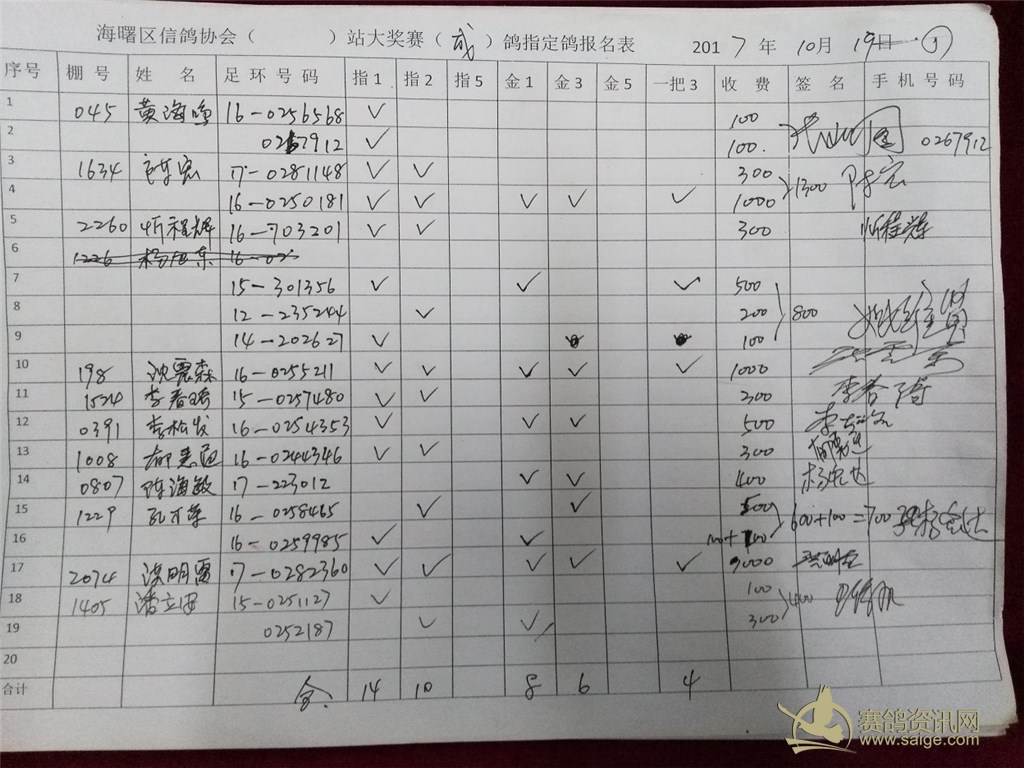 海曙区信鸽协会（ ）站大奖赛（成）鸽指定鸽报名表 2017年10月19日
序号 棚号 姓名 足环号码 指1 指2 指5 金1 金3 金5 一把3 收费 签名 手机号码
1 045 黄海鸣 16-0256568 ✓ 100
2 0267912 ✓ 100. 0267912
3 1634 陈宏 17-0281148 ✓ ✓ 300
4 16-0250181 ✓ ✓ ✓ ✓ ✓ 1000 1300 陈宏
5 2260 忻程辉 16-703201 ✓ ✓ 300 忻程辉
6 1226 杨旭东 16-02
7 15-301356 ✓ ✓ ✓ 500
8 12-235244 ✓ 200 800
9 14-202627 ✓ 100
10 198 沈震森 16-0255211 ✓ ✓ ✓ ✓ ✓ 1000
11 1524 李春 15-0257480 ✓ ✓ 300
12 0391 李松发 16-0254353 ✓ ✓ 500
13 1008 16-0244346 ✓ ✓ 300
14 0807 陈海敏 17-223012 ✓ ✓ 400
15 1229 16-0258465 ✓ ✓ 500 600+100=700
16 16-0259985 ✓ ✓
17 2074 洪明雷 17-0282360 ✓ ✓ ✓ ✓ ✓
18 1405 潘立安 15-0251127 ✓ 100 400
19 0252187 ✓ ✓ 300
20
合计 合: 14 10 8 6 4
赛鸽资讯网
www.saige.com